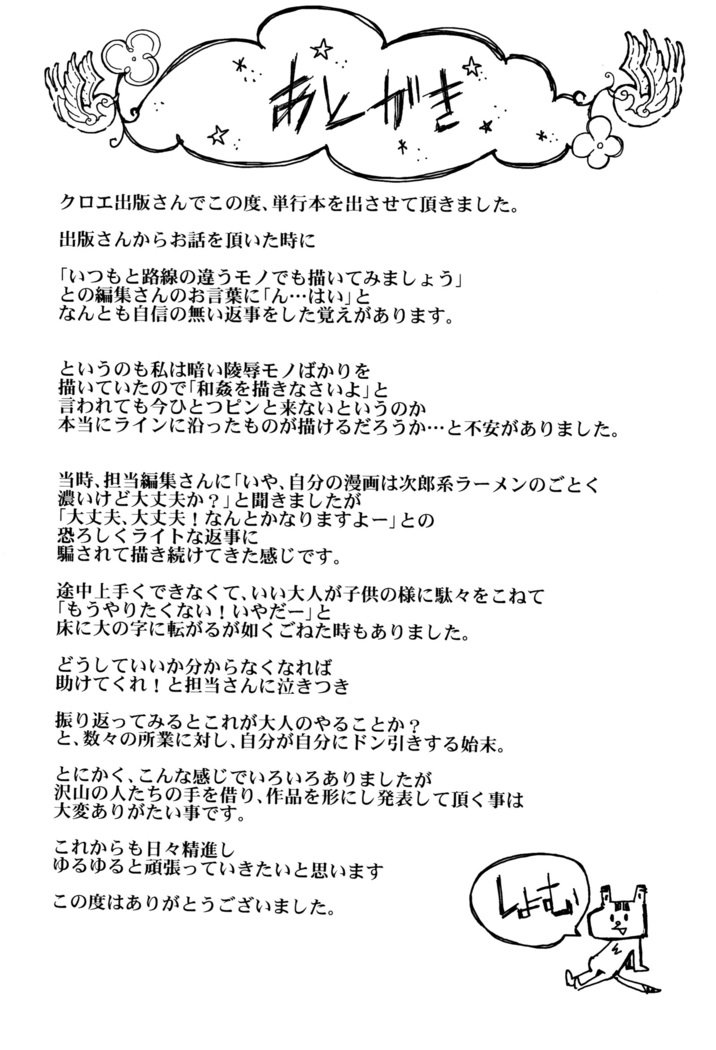 あとがき
クロエ出版さんでこの度、単行本を出させて頂きました。
出版さんからお話を頂いた時に
「いつもと路線の違うモノでも描いてみましょう」
との編集さんのお言葉に「ん…はい」と
なんとも自信の無い返事をした覚えがあります。
というのも私は暗い陵辱モノばかりを
描いていたので「和姦を描きなさいよ」と
言われても今ひとつピンと来ないというのか
本当にラインに沿ったものが描けるだろうか…と不安がありました。
当時、担当編集さんに「いや、自分の漫画は次郎系ラーメンのごとく
濃いけど大丈夫か?」と聞きましたが
「大丈夫、大丈夫!なんとかなりますよー」との
恐ろしくライトな返事に
騙されて描き続けてきた感じです。
途中上手くできなくて、いい大人が子供の様に駄々をこねて
「もうやりたくない!いやだー」と
床に大の字に転がるが如くごねた時もありました。
どうしていいか分からなくなれば
助けてくれ!と担当さんに泣きつき
振り返ってみるとこれが大人のやることか?
と、数々の所業に対し、自分が自分にドン引きする始末。
とにかく、こんな感じでいろいろありましたが
沢山の人たちの手を借り、作品を形にし発表して頂く事は
大変ありがたい事です。
これからも日々精進し
ゆるゆると頑張っていきたいと思います
この度はありがとうございました。
しょむ